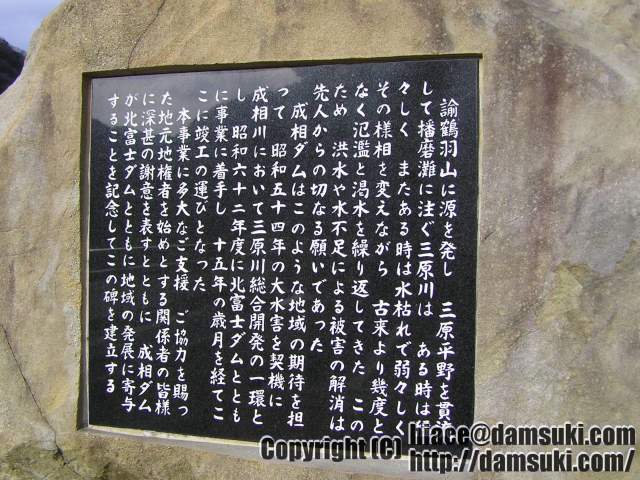 諭鶴羽山に源を発し　三原平野を貫流
して播磨灘に注ぐ三原川は　ある時は
々しく　またある時は水枯れで弱々しく
その様相を変えながら　古来より幾度と
なく氾濫と渇水を繰り返してきた　この
ため　洪水や水不足による被害の解消は
先人からの切なる願いであった
成相ダムはこのような地域の期待を担
って　昭和五十四年の大水害を契機に
成相川において三原川総合開発の一環と
し　昭和六十二年度に北富士ダムととも
に事業に着手し　十五年の歳月を経てこ
こに竣工の運びとなった
本事業に多大なご支援　ご協力を賜っ
た地元地権者を始めとする関係者の皆様
に深甚の謝意を表すとともに　成相ダム
が北富士ダムとともに地域の発展に寄与
することを記念してこの碑を建立する
Copyright (C) hiace@damsuki.com
http://damsuki.com/